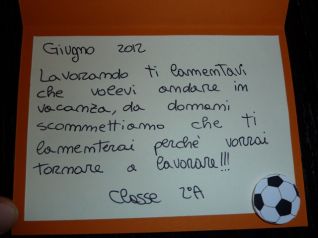 Giugno 2012
Lavorando ti lamentavi
che volevi andare in
vacanza, da domani
scommettiamo che ti
lamenterai perchè vorrai
tornare a lavorare!!!
Classe 2°A